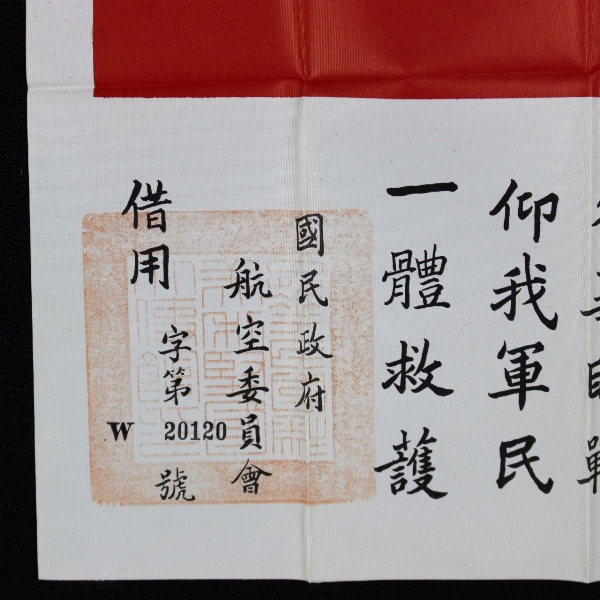 仰我軍民
一體救護
國民政府
航空委員會
借用
W 字第 20120 號